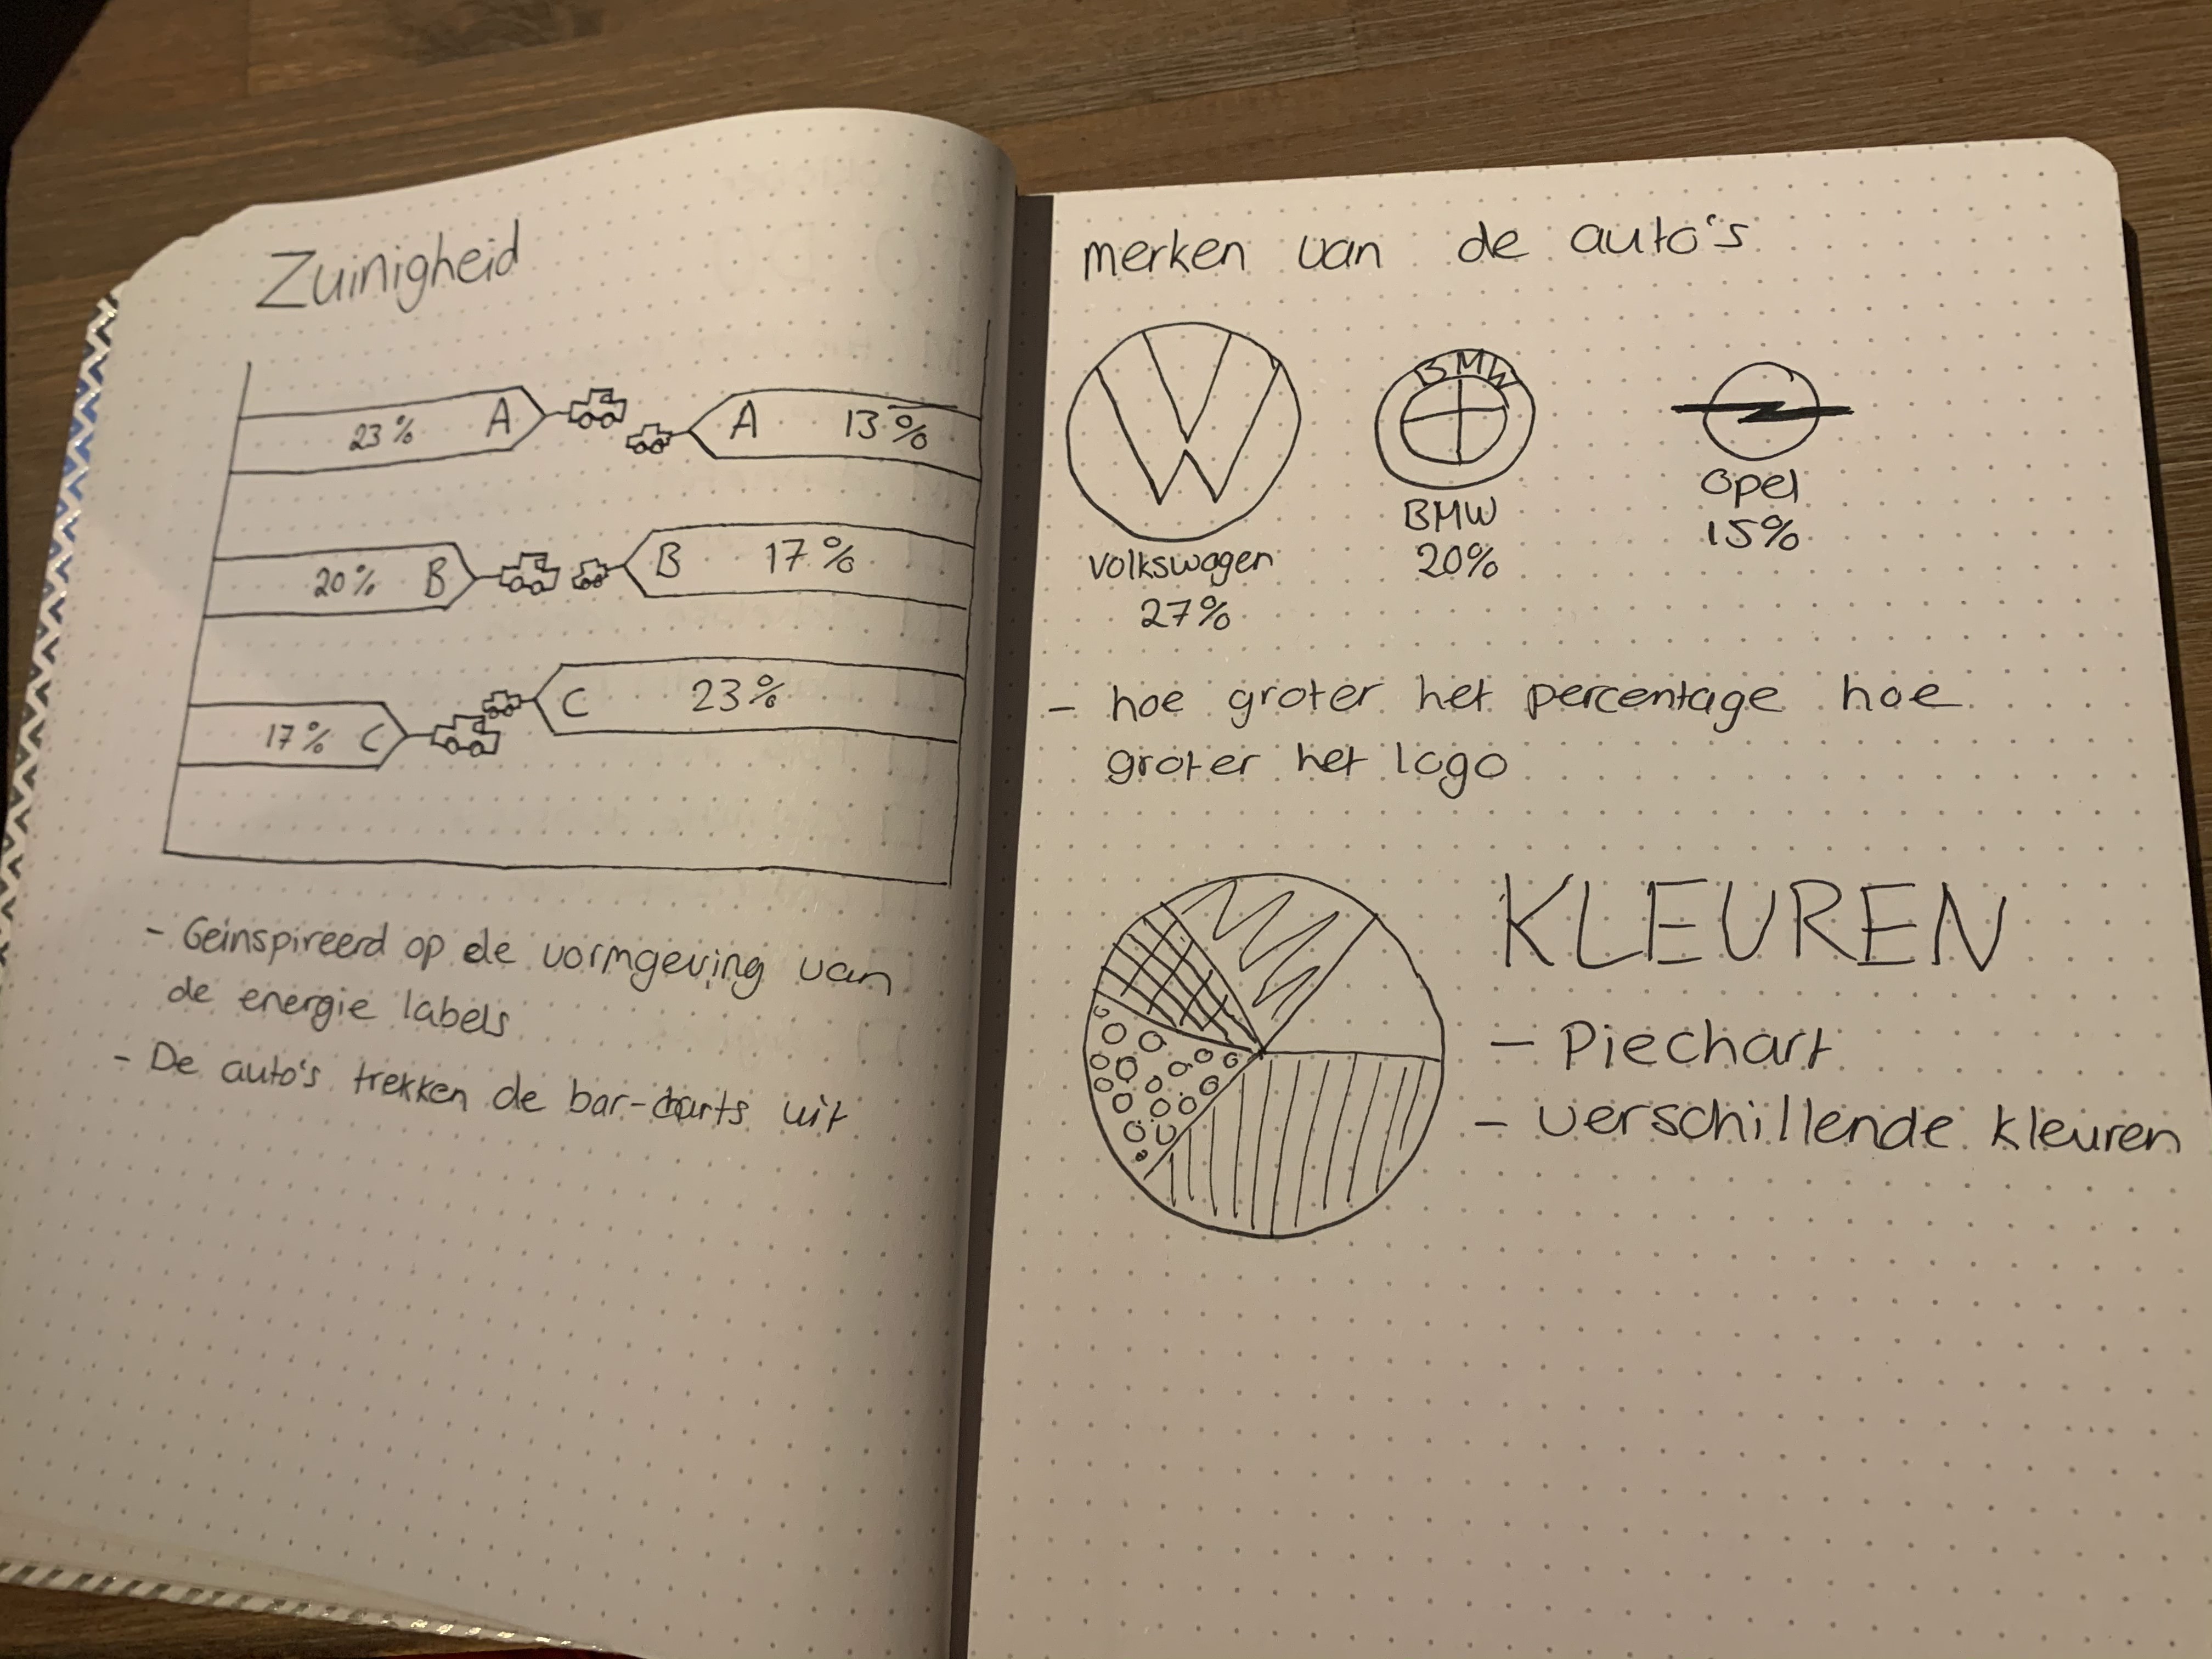 Zuinigheid
23% A A 13%
20% B B 17%
17% C C 23%
- Geinspireerd op de vormgeving van
de energie labels
- De auto's trekken de bar-charts uit
merken van de auto's
BMW
Volkswagen
27%
BMW
20%
Opel
15%
- hoe groter het percentage hoe
groter het logo
KLEUREN
- Piechart
- verschillende kleuren